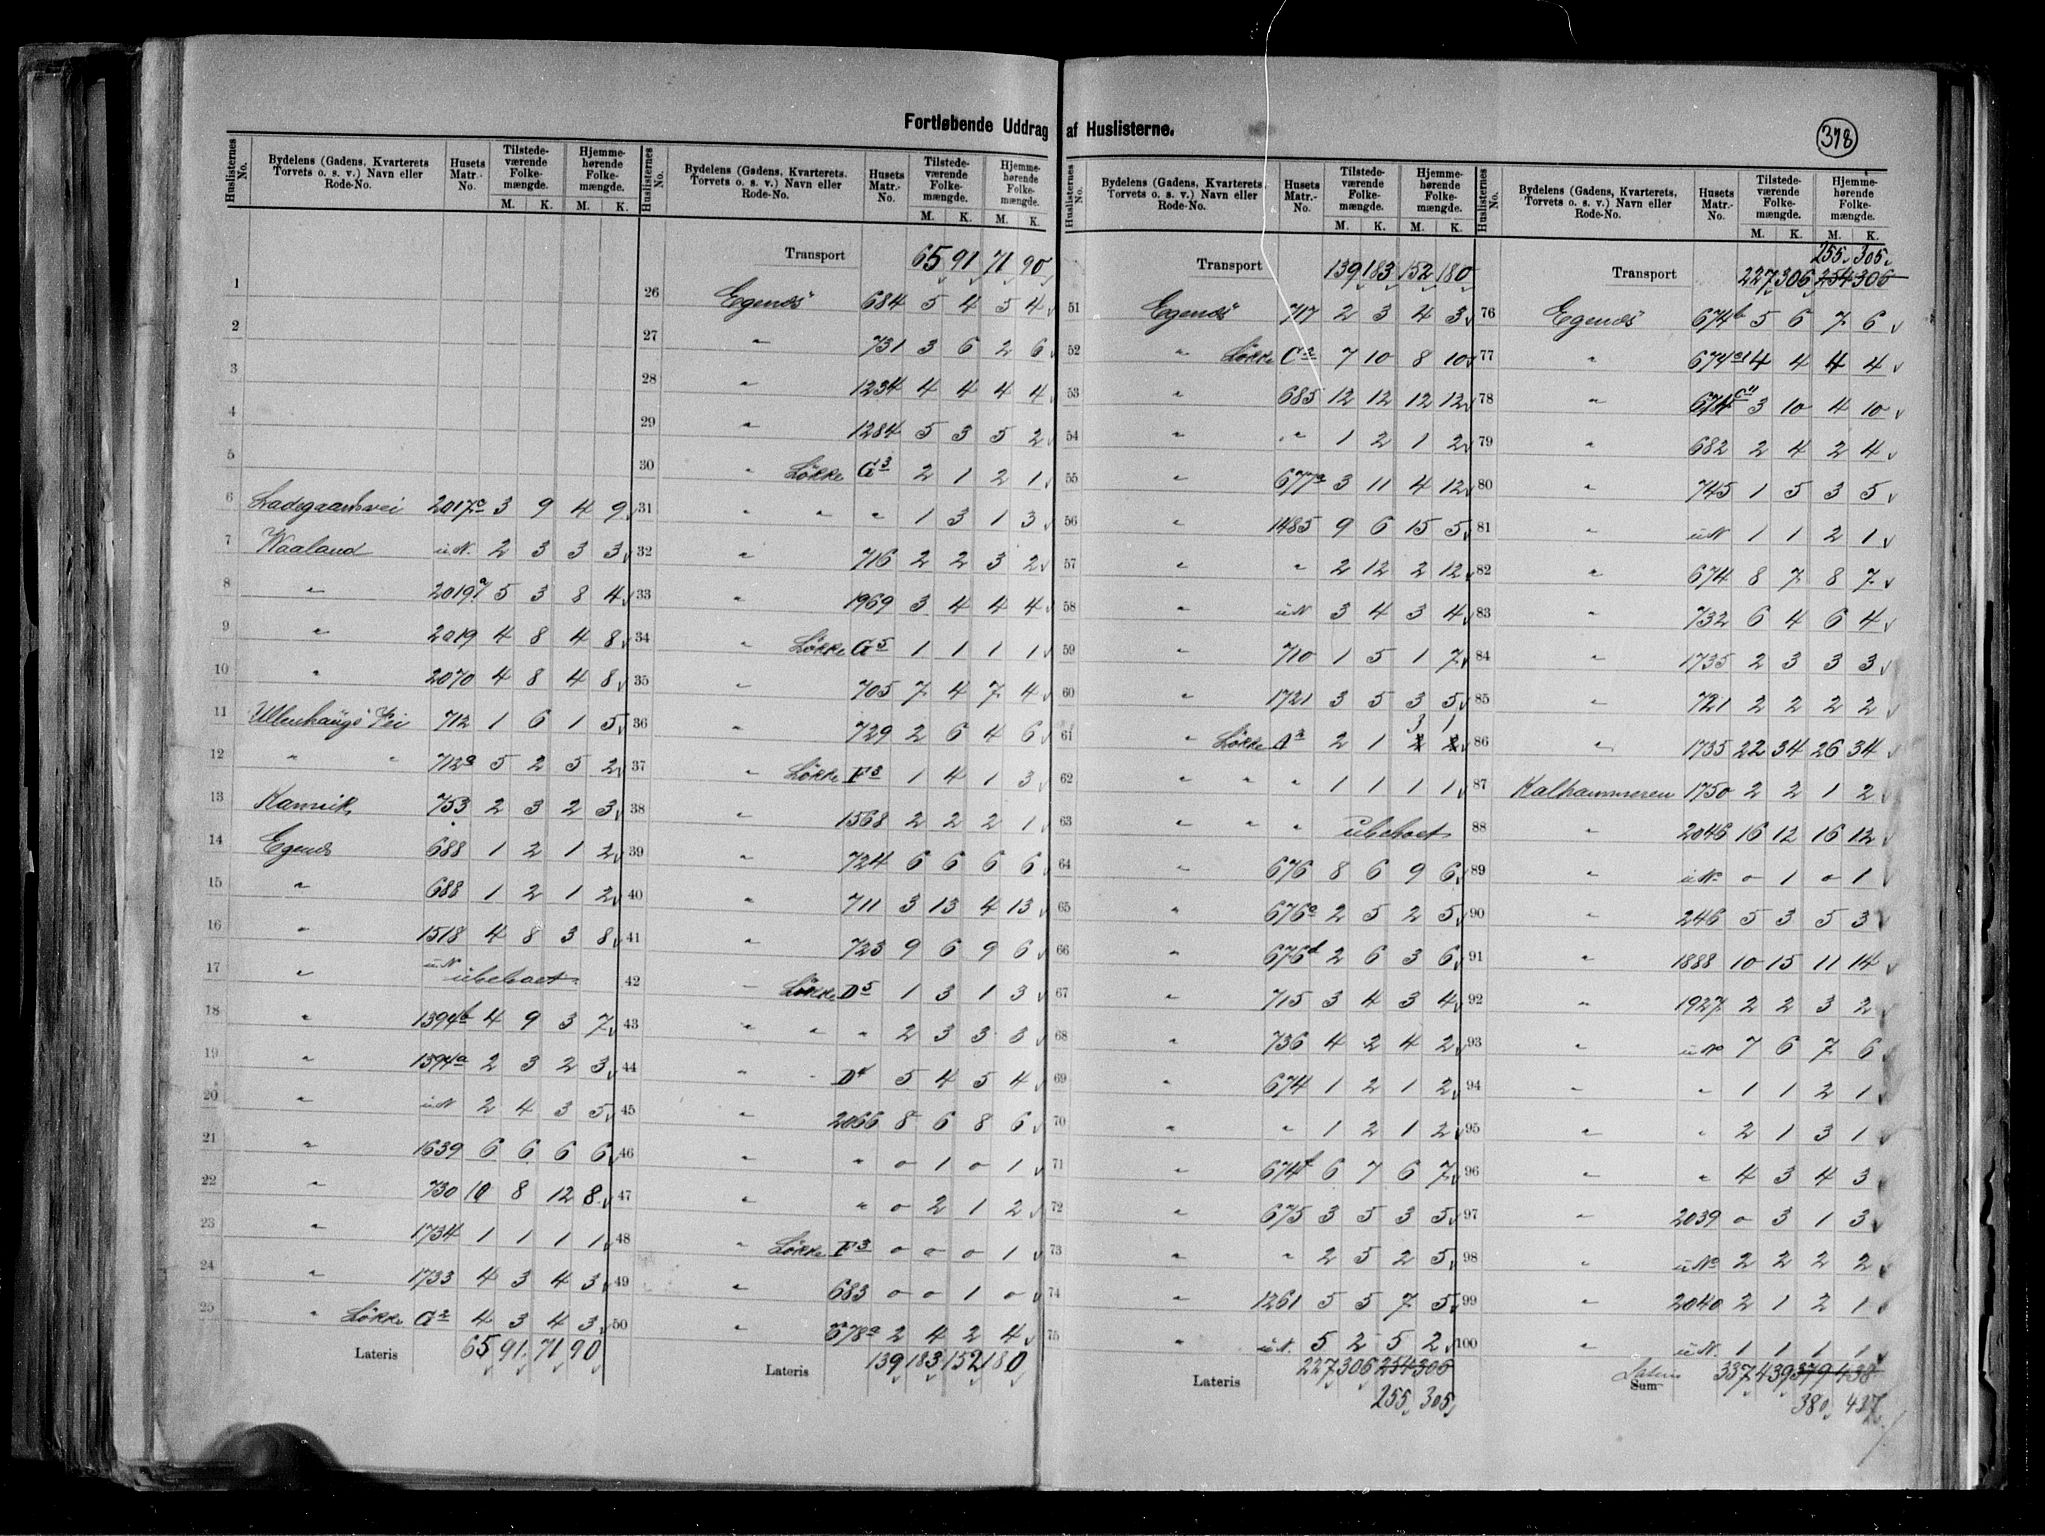 Fortløbende Uddrag af Huslisterne.
378
Huslisternes No. | Bydelens (Gadens, Kvarterets Torvets o. s. v.) Navn eller Rode-No. | Husets Matr.-No. | Tilstede-værende Folke-mængde. M. K. | Hjemme-hørende Folke-mængde. M. K.
1
2
3
4
5
6 Ladegaardsvei 2017a 3 9 4 9
7 Waaland uN. 2 3 3 3
8 " 2019 5 3 8 4
9 " 2019 4 8 4 8
10 " 2070 4 8 4 8
11 Ullenhaugs Vei 712 1 6 1 5
12 " " 712a 5 2 5 2
13 Kannik 753 2 3 2 3
14 Egenes 688 1 2 1 2
15 " 688 1 2 1 2
16 " 1518 4 8 3 8
17 " uN ubeboet
18 " 1394b 4 9 3 7
19 " 1394a 2 3 2 3
20 " uN 2 4 3 5
21 " 1639 6 6 6 6
22 " 730 10 8 12 8
23 " 1734 1 1 1 1
24 " 1733 4 3 4 3
25 " Løkke G2 4 3 4 3
Lateris 65 91 71 90
Huslisternes No. | Bydelens (Gadens, Kvarterets. Torvets o. s. v.) Navn eller Rode-No. | Husets Matr.-No. | Tilstede-værende Folke-mængde. M. K. | Hjemme-hørende Folke-mængde. M. K.
Transport 65 91 71 90
26 Egenæs 684 5 4 5 4
27 " 731 3 6 2 6
28 " 1234 4 4 4 4
29 " 1284 5 3 5 2
30 " Løkke G3 2 1 2 1
31 " " " 1 3 1 3
32 " 716 2 2 3 2
33 " 1969 3 4 4 4
34 " Løkke G5 1 1 1 1
35 " 705 7 4 7 4
36 " 729 2 6 4 6
37 " Løkke F3 1 4 1 3
38 " 1568 2 2 2 1
39 " 724 6 6 6 6
40 " 711 3 13 4 13
41 " 723 9 6 9 6
42 " Løkke D5 1 3 1 3
43 " " " 2 3 3 3
44 " " D4 5 4 5 4
45 " 2066 8 6 8 6
46 " " 0 1 0 1
47 " " 0 2 1 2
48 " Løkke F3 0 0 0 1
49 " 683 0 0 1 0
50 " 678a 2 4 2 4
Lateris 139 183 152 180
Huslisternes No. | Bydelens (Gadens, Kvarterets, Torvets o. s. v.) Navn eller Rode-No. | Husets Matr.-No. | Tilstede-værende Folke-mængde. M. K. | Hjemme-hørende Folke-mængde. M. K.
Transport 139 183 152 180
51 Egenæs 717 2 3 4 3
52 " Løkke C2 7 10 8 10
53 " 685 12 12 12 12
54 " " 1 2 1 2
55 " 677a 3 11 4 12
56 " 1485 9 6 15 5
57 " " 2 12 2 12
58 " uN 3 4 3 4
59 " 710 1 5 1 7
60 " 1721 3 5 3 5
3 1
61 " Løkke A2 2 1 2 2
62 " " " 1 1 1 1
63 " " " ubeboet
64 " 676 8 6 9 6
65 " 676a 2 5 2 5
66 " 676d 2 6 3 6
67 " 715 3 4 3 4
68 " 736 4 2 4 2
69 " 674 1 2 1 2
70 " " 1 2 1 2
71 " 674f 6 7 6 7
72 " 675 3 5 3 5
73 " " 2 5 2 5
74 " 1261 5 5 7 5
75 " uN. 5 2 5 2
Lateris 227 306 254 306
255 305
Huslisternes No. | Bydelens (Gadens, Kvarterets, Torvets o. s. v.) Navn eller Rode-No. | Husets Matr.-No. | Tilstede-værende Folke-mængde. M. K. | Hjemme-hørende Folke-mængde. M. K.
255 305
Transport 227 306 254 306
76 Egenæs 674b 5 6 7 6
77 " 674 4 4 4 4
78 " 674 3 10 4 10
79 " 682 2 4 2 4
80 " 745 1 5 3 5
81 " uN 1 1 2 1
82 " 674 8 7 8 7
83 " 732 6 4 6 4
84 " 1735 2 3 3 3
85 " 721 2 2 2 2
86 " 1735 22 34 26 34
87 Kalhammeren 1750 2 2 1 2
88 " 2046 16 12 16 12
89 " uNo 0 1 0 1
90 " 246 5 3 5 3
91 " 1888 10 15 11 14
92 " 1927 2 2 3 2
93 " uNo 7 6 7 6
94 " " 1 1 2 1
95 " " 2 1 3 1
96 " " 4 3 4 3
97 " 2039 0 3 1 3
98 " uNo 2 2 2 2
99 " 2040 2 1 2 1
100 " uN. 1 1 1 1
Lateris Sum 337 439 379 438
380 437